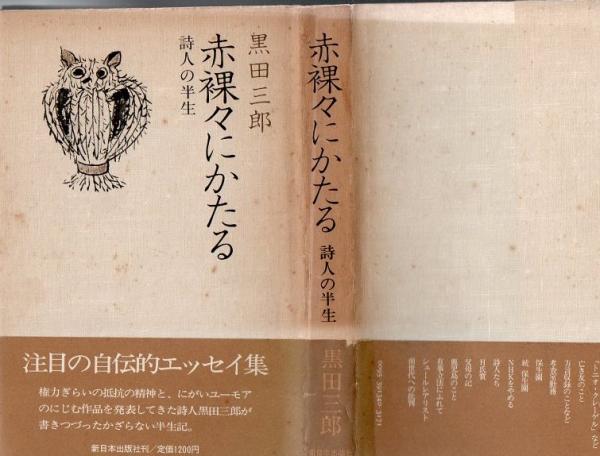 黒田三郎
赤裸々にかたる
詩人の半生
注目の自伝的エッセイ集
権力ぎらいの抵抗の精神と、にがいユーモア
のにじむ作品を発表してきた詩人黒田三郎が
書きつづったかざらない半生記。
新日本出版社刊/定価1200円
赤裸々にかたる 詩人の半生
黒田三郎
「トニオ・クレーゲル」など
亡き友のこと
方言収録のことなど
考査室勤務
保生園
続 保生園
NHKをやめる
詩人たち
H氏賞
父母の記
鹿児島のこと
有事立法にふれて
シュールレアリスト
前世代への批判